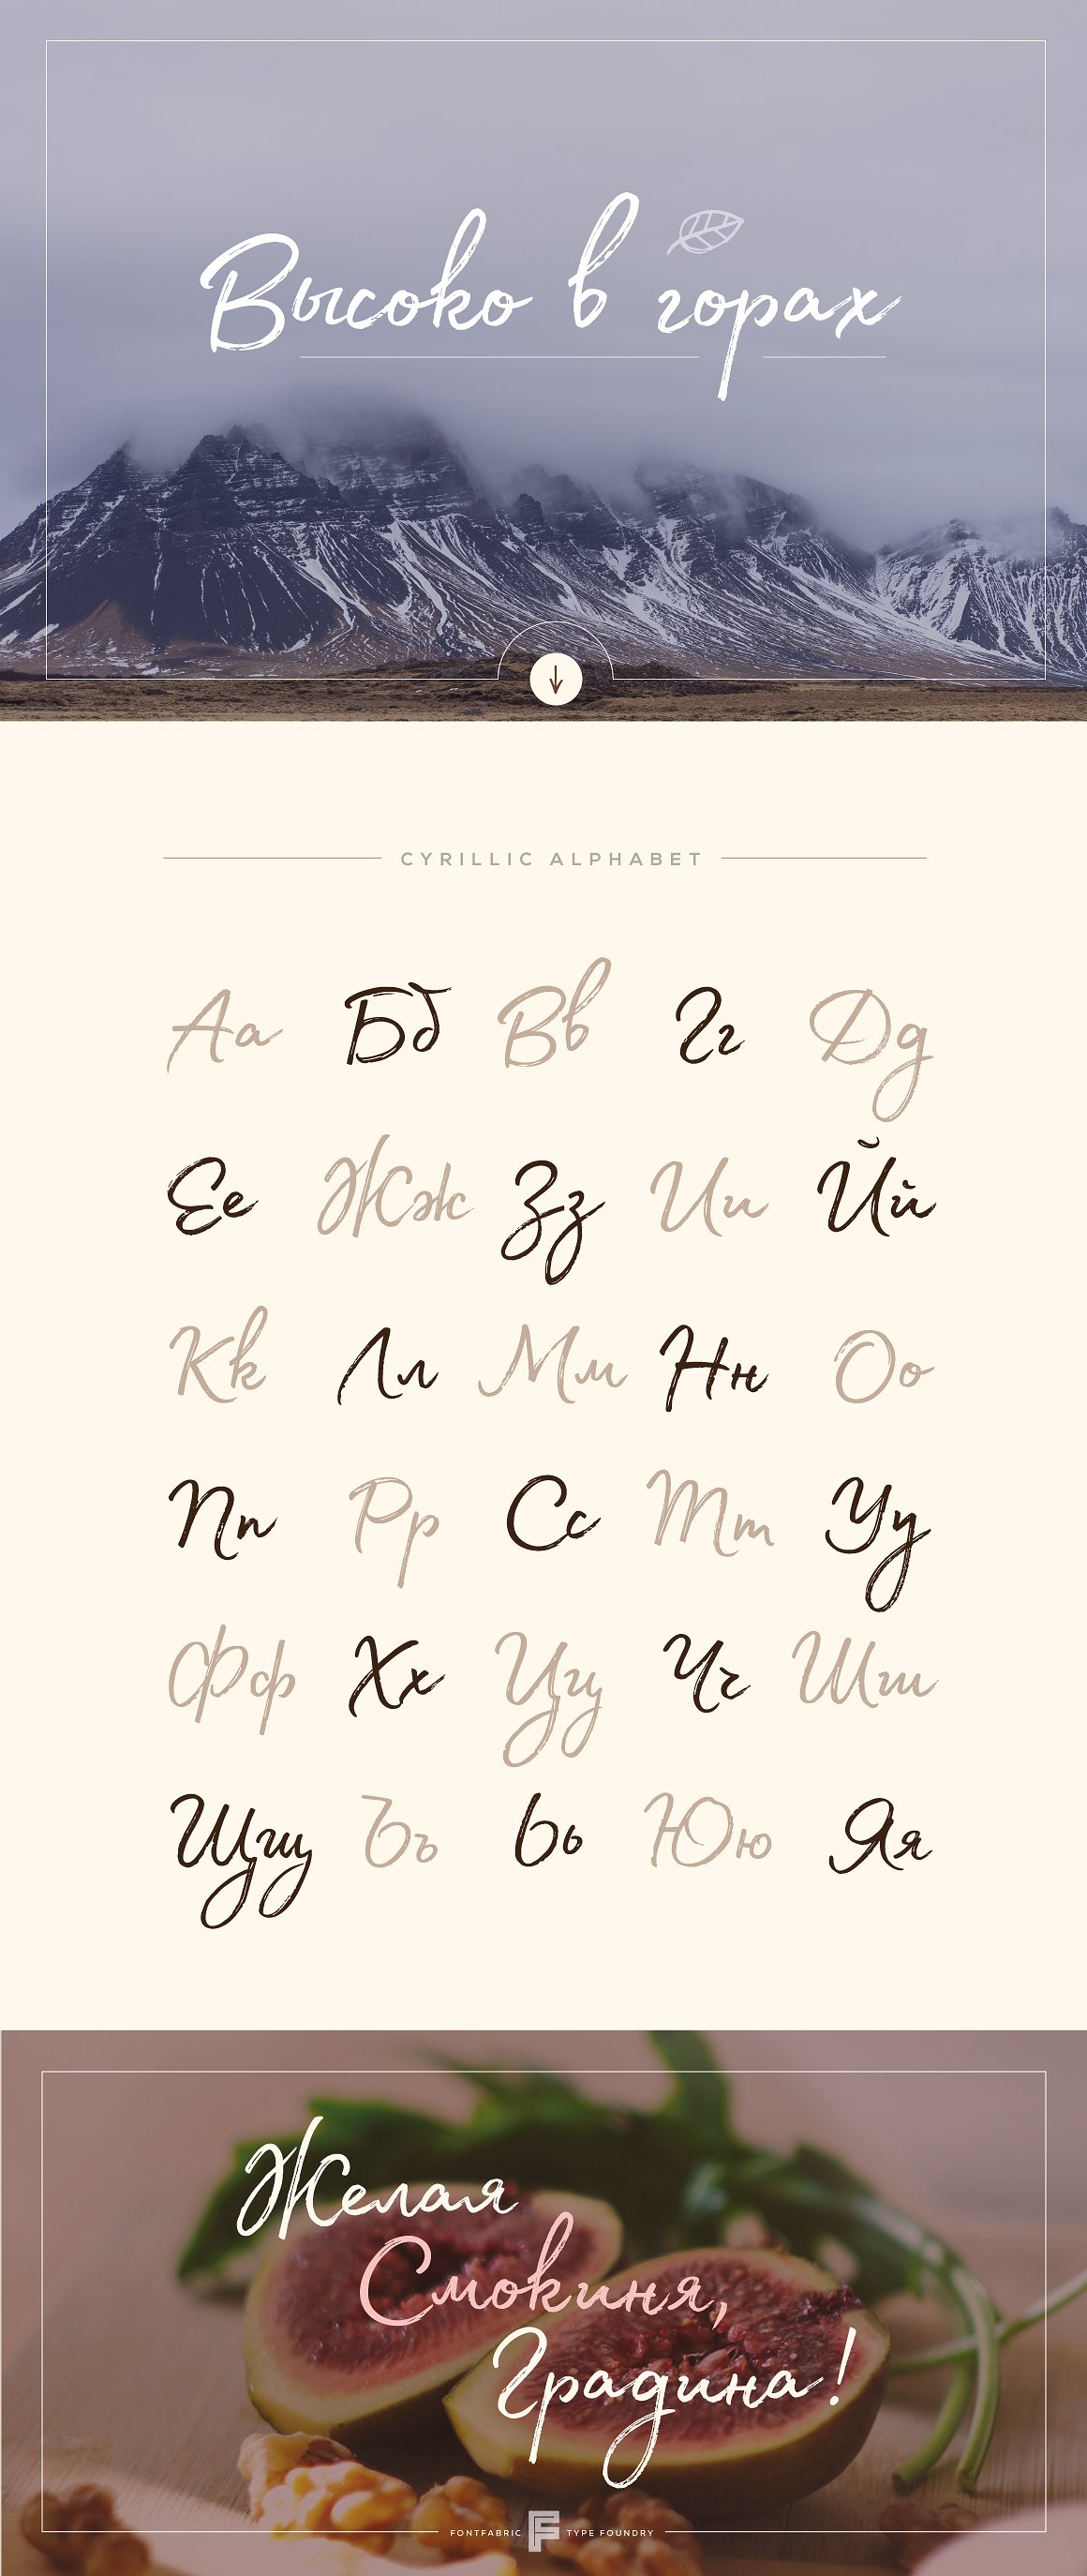 Високо в горах
CYRILLIC ALPHABET
Аа Бб Вв Гг Дд
Ее Жж Зз Ии Йй
Кк Лл Мм Нн Оо
Пп Рр Сс Тт Уу
Фф Хх Цц Чч Шш
Щщ Ъъ Ьь Юю Яя
Желая
Смокиня,
Градина!
FONTFABRIC F TYPE FOUNDRY